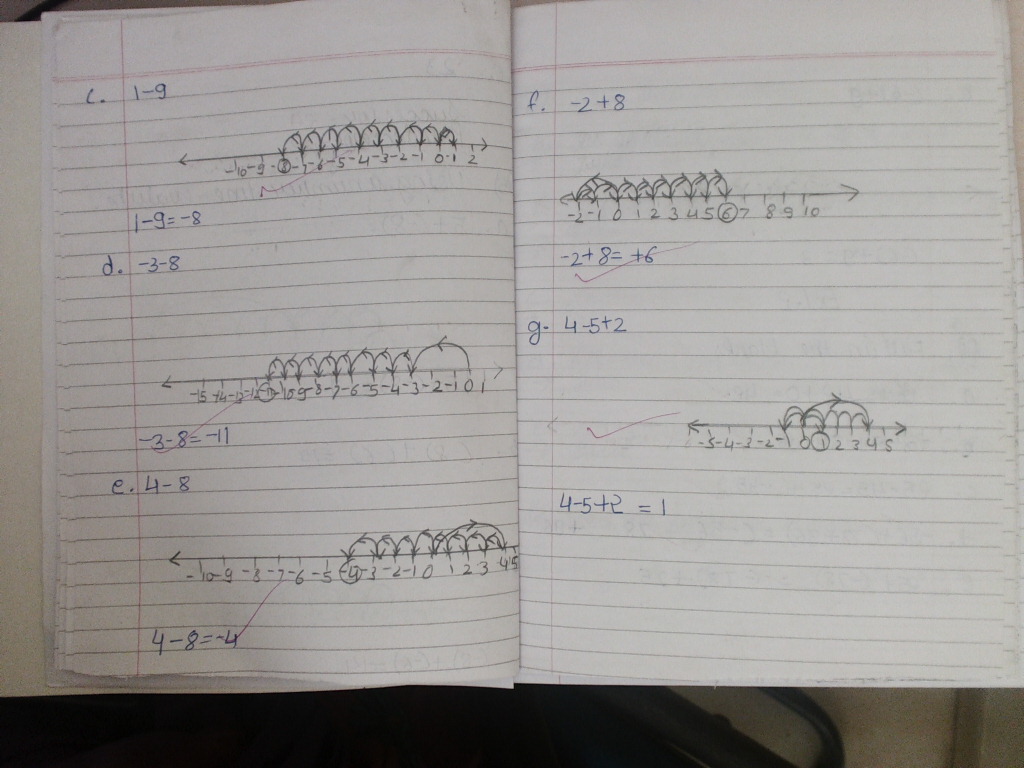 c. 1-9
-10 -9 -8 -7 -6 -5 -4 -3 -2 -1 0 1 2
1-9=-8
d. -3-8
-15 -14 -13 -12 -11 -10 -9 -8 -7 -6 -5 -4 -3 -2 -1 0 1
-3-8=-11
e. 4-8
-10 -9 -8 -7 -6 -5 -4 -3 -2 -1 0 1 2 3 4 5
4-8=-4
f. -2+8
-2 -1 0 1 2 3 4 5 6 7 8 9 10
-2+8=+6
g. 4-5+2
-5 -4 -3 -2 -1 0 1 2 3 4 5
4-5+2 = 1